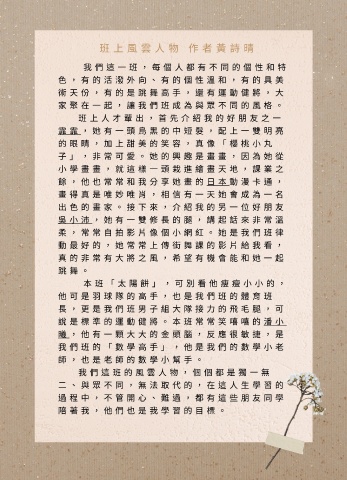 班上風雲人物 作者黃詩晴
我們這一班，每個人都有不同的個性和特
色，有的活潑外向、有的個性溫和，有的具美
術天份，有的是跳舞高手，還有運動健將，大
家聚在一起，讓我們班成為與眾不同的風格。
班上人才輩出，首先介紹我的好朋友之一
霏霏，她有一頭烏黑的中短髮，配上一雙明亮
的眼睛，加上甜美的笑容，真像「櫻桃小丸
子」，非常可愛。她的興趣是畫畫，因為她從
小學畫畫，就這樣一頭栽進繪畫天地，課業之
餘，他也常常和我分享她畫的日本動漫卡通，
畫得真是唯妙唯肖，相信有一天她會成為一名
出色的畫家。接下來，介紹我的另一位好朋友
吳小沛，她有一雙修長的腿，講起話來非常溫
柔，常常自拍影片像個小網紅。她是我們班律
動最好的，她常常上傳街舞課的影片給我看，
真的非常有大將之風，希望有機會能和她一起
跳舞。
本班「太陽餅」，可別看他瘦瘦小小的，
他可是羽球隊的高手，也是我們班的體育班
長，更是我們班男子組大隊接力的飛毛腿，可
說是標準的運動健將。本班常常笑嘻嘻的潘小
，他有一顆大大的金頭腦，反應很敏捷，是
我們班的「數學高手」，他是我們的數學小老
師，也是老師的數學小幫手。
我們這班的風雲人物，個個都是獨一無
二、與眾不同，無法取代的，在這人生學習的
過程中，不管開心、難過，都有這些朋友同學
陪著我，他們也是我學習的目標。